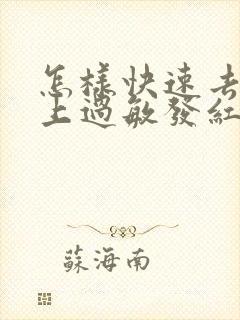 怎樣快速去
上過敏發紅
蘇海南